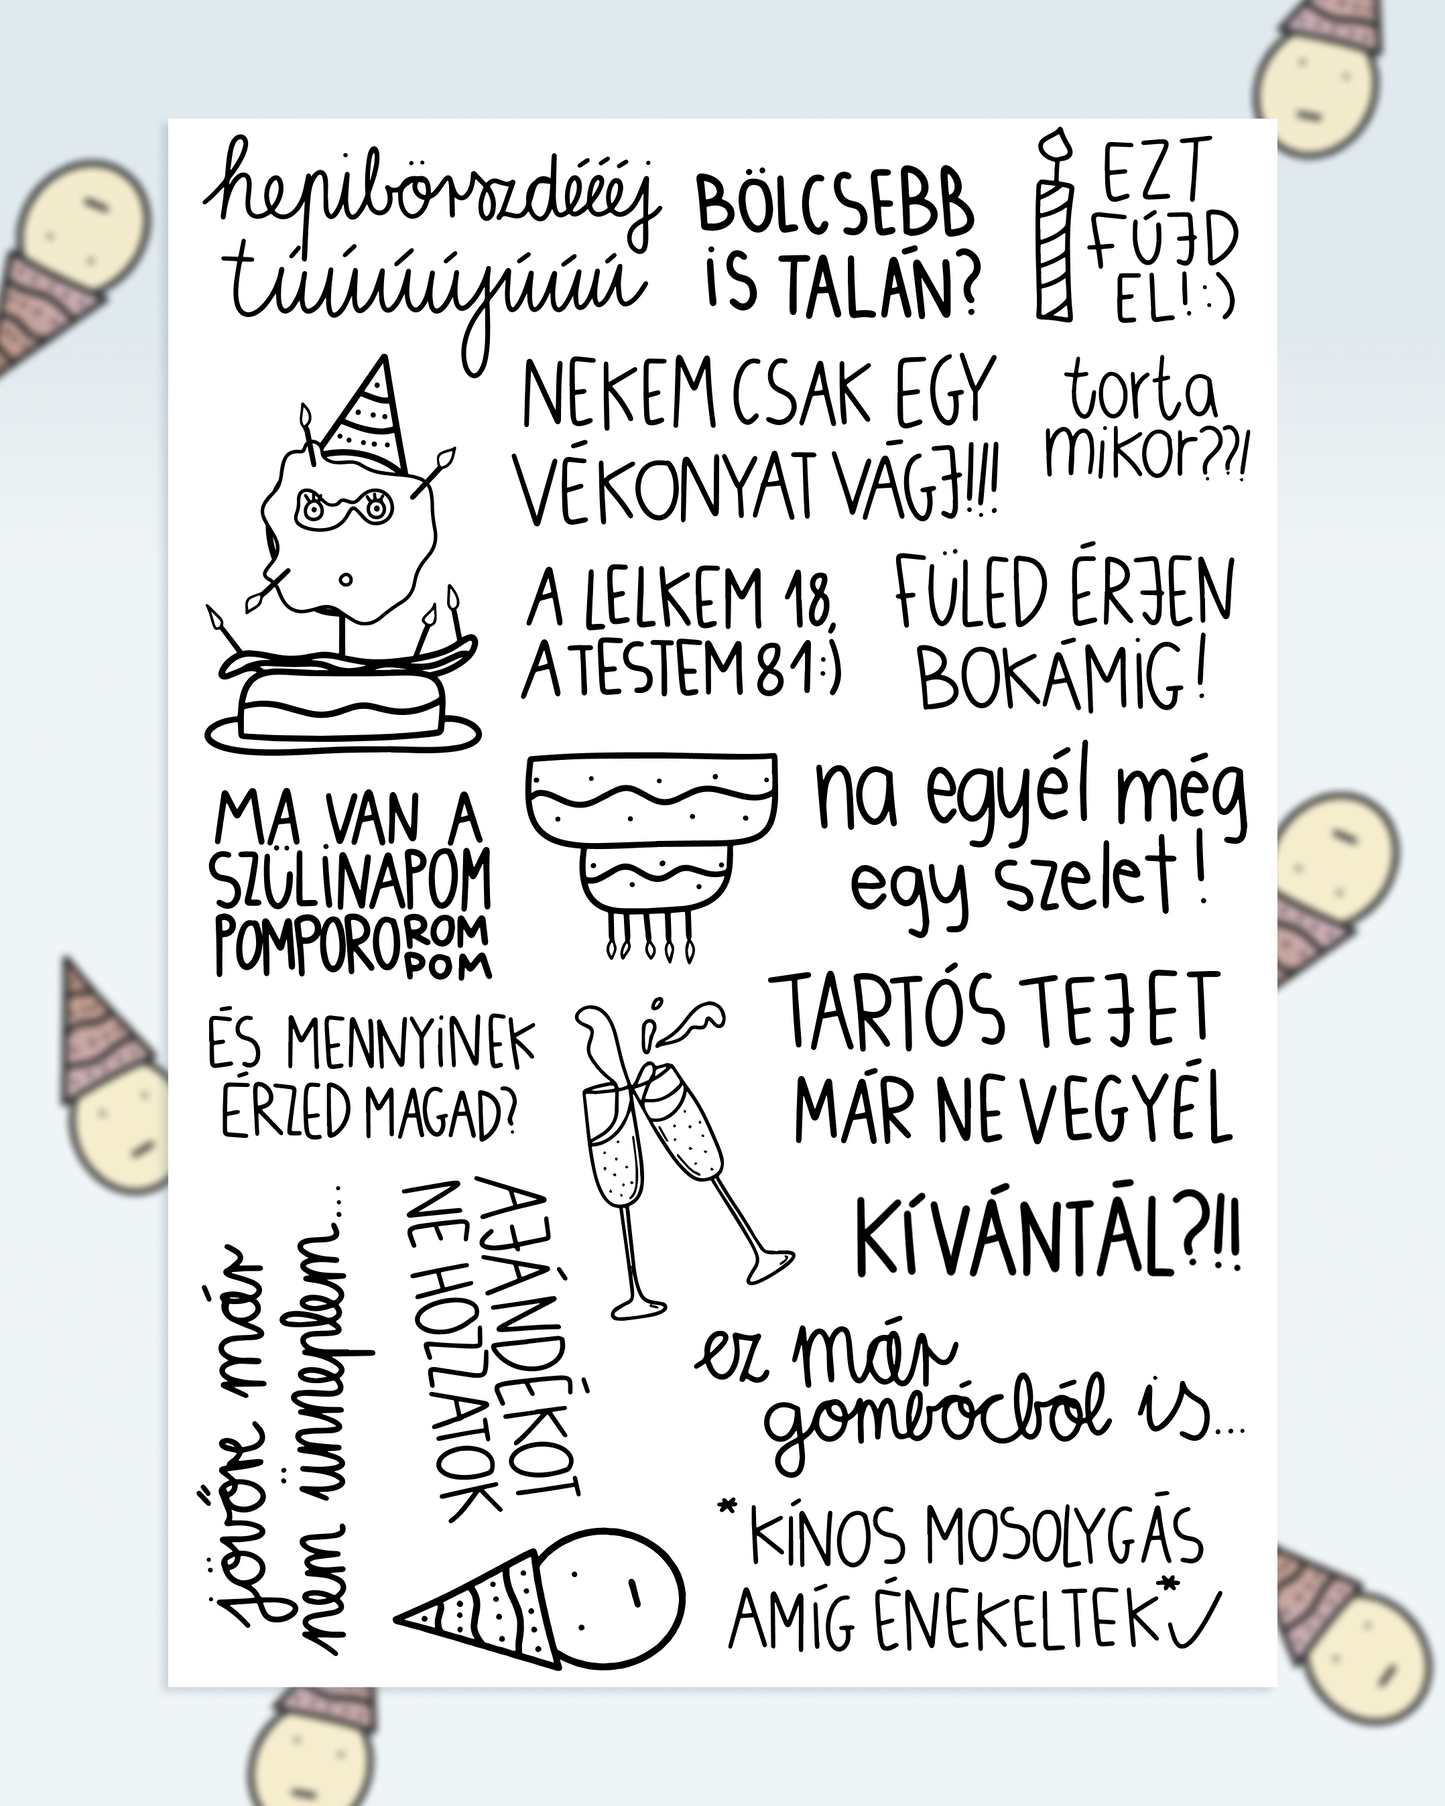 hepibörszdééééj
túúúúúyúúúú
BÖLCSEBB
IS TALÁN?
EZT
FÚJD
EL! :)
NEKEM CSAK EGY
VÉKONYAT VÁGJ!!!
torta
mikor??!
A LELKEM 18,
A TESTEM 81 :)
FÜLED ÉRJEN
BOKÁMIG!
MA VAN A
SZÜLINAPOM
POMPOROROM
POM
na egyél még
egy szelet!
ÉS MENNYINEK
ÉRZED MAGAD?
TARTÓS TEJET
MÁR NE VEGYÉL
KÍVÁNTÁL?!!
jövőre már
nem ünneplem...
AJÁNDÉKOT
NE HOZZATOK
ez már
gombócból is...
*KÍNOS MOSOLYGÁS
AMÍG ÉNEKELTEK*✓